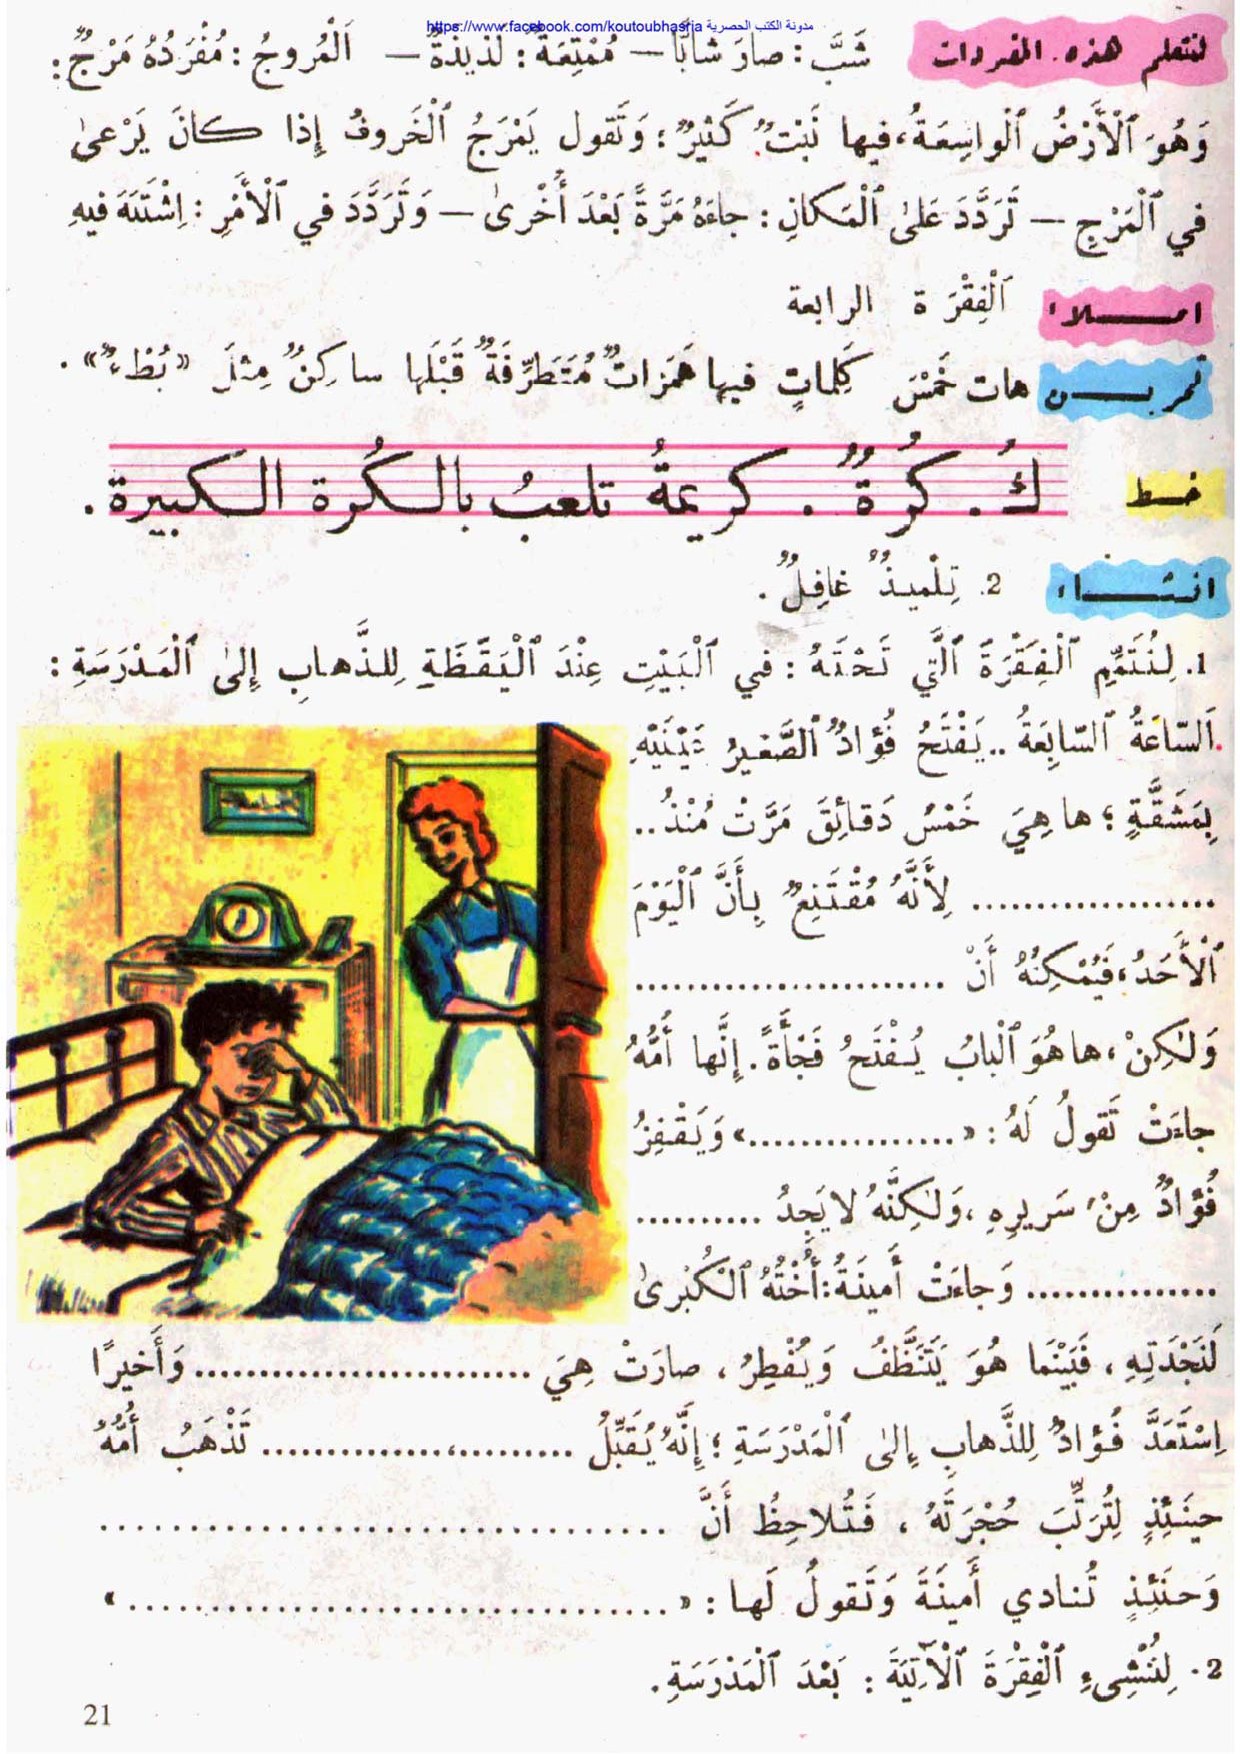 https://www.facebook.com/koutoubhasria مدونة الكتب الحصرية
لنتعلم هذه المفردات شَبَّ : صارَ شابًّا — مُمْتِعَةٌ : لَذيذَةٌ — اَلْمُروجُ : مُفْرَدُهُ مَرْجٌ :
وَهُوَ ٱلْأَرْضُ ٱلْواسِعَةُ، فيها نَبْتٌ كَثيرٌ ؛ وَتَقول يَمْرَجُ ٱلْخَروفُ إِذا كانَ يَرْعىٰ
في ٱلْمَرْجِ — تَرَدَّدَ عَلىٰ ٱلْمَكانِ : جاءَهُ مَرَّةً بَعْدَ أُخْرىٰ — وَتَرَدَّدَ في ٱلْأَمْرِ : اِشْتَبَهَ فيهِ
امـــلاء اَلْفِقْرَة الرابعة
تمريـــن هات خَمْسَ كَلِماتٍ فيها هَمَزاتٌ مُتَطَرِّفَةٌ قَبْلَها ساكِنٌ مِثلَ «بُطْءٌ» .
خـط كُ . كُرَةٌ . كريمةُ تلعبُ بالكُرة الكبيرة .
انشـــاء 2. تِلْميذٌ غافِلٌ .
1. لِنُتَمِّمِ ٱلْفِقْرَةَ ٱلَّتي تَحْتَهُ : في ٱلْبَيْتِ عِنْدَ ٱلْيَقَظَةِ لِلذَّهابِ إِلىٰ ٱلْمَدْرَسَةِ :
اَلسّاعَةُ ٱلسّابِعَةُ .. يَفْتَحُ فُؤادٌ ٱلصَّغيرُ عَيْنَيْهِ
بِمَشَقَّةٍ ؛ ها هِيَ خَمْسُ دَقائِقَ مَرَّتْ مُنْذُ ..
.................. لِأَنَّهُ مُقْتَنِعٌ بِأَنَّ ٱلْيَوْمَ
ٱلْأَحَدُ، فَيُمْكِنُهُ أَنْ ........................
وَلٰكِنْ، ها هُوَ ٱلْبابُ يُفْتَحُ فَجْأَةً. إِنَّها أُمُّهُ
جاءَتْ تَقولُ لَهُ : «................» وَيَقْفِزُ
فُؤادٌ مِنْ سَريرِهِ، وَلٰكِنَّهُ لا يَجِدُ ...........
............... وَجاءَتْ أَمينَةُ : أُخْتُهُ ٱلْكُبْرىٰ
لَنَجْدَتِهِ ، فَبَيْنَما هُوَ يَتَنَظَّفُ وَيُفْطِرُ ، صارَتْ هِيَ ............................ وَأَخيرًا
اِسْتَعَدَّ فُؤادٌ لِلذَّهابِ إِلىٰ ٱلْمَدْرَسَةِ ؛ إِنَّهُ يُقَبِّلُ ..........،............... تَذْهَبُ أُمُّهُ
حينَئِذٍ لِتُرَتِّبَ حُجْرَتَهُ ، فَتُلاحِظُ أَنَّ ....................................
وَحنَئِذٍ تُنادي أَمينَةَ وَتَقولُ لَها : « .................................... »
2. لِنُنْشِىءِ ٱلْفِقْرَةَ ٱلْآتِيَةَ : بَعْدَ ٱلْمَدْرَسَةِ .
21